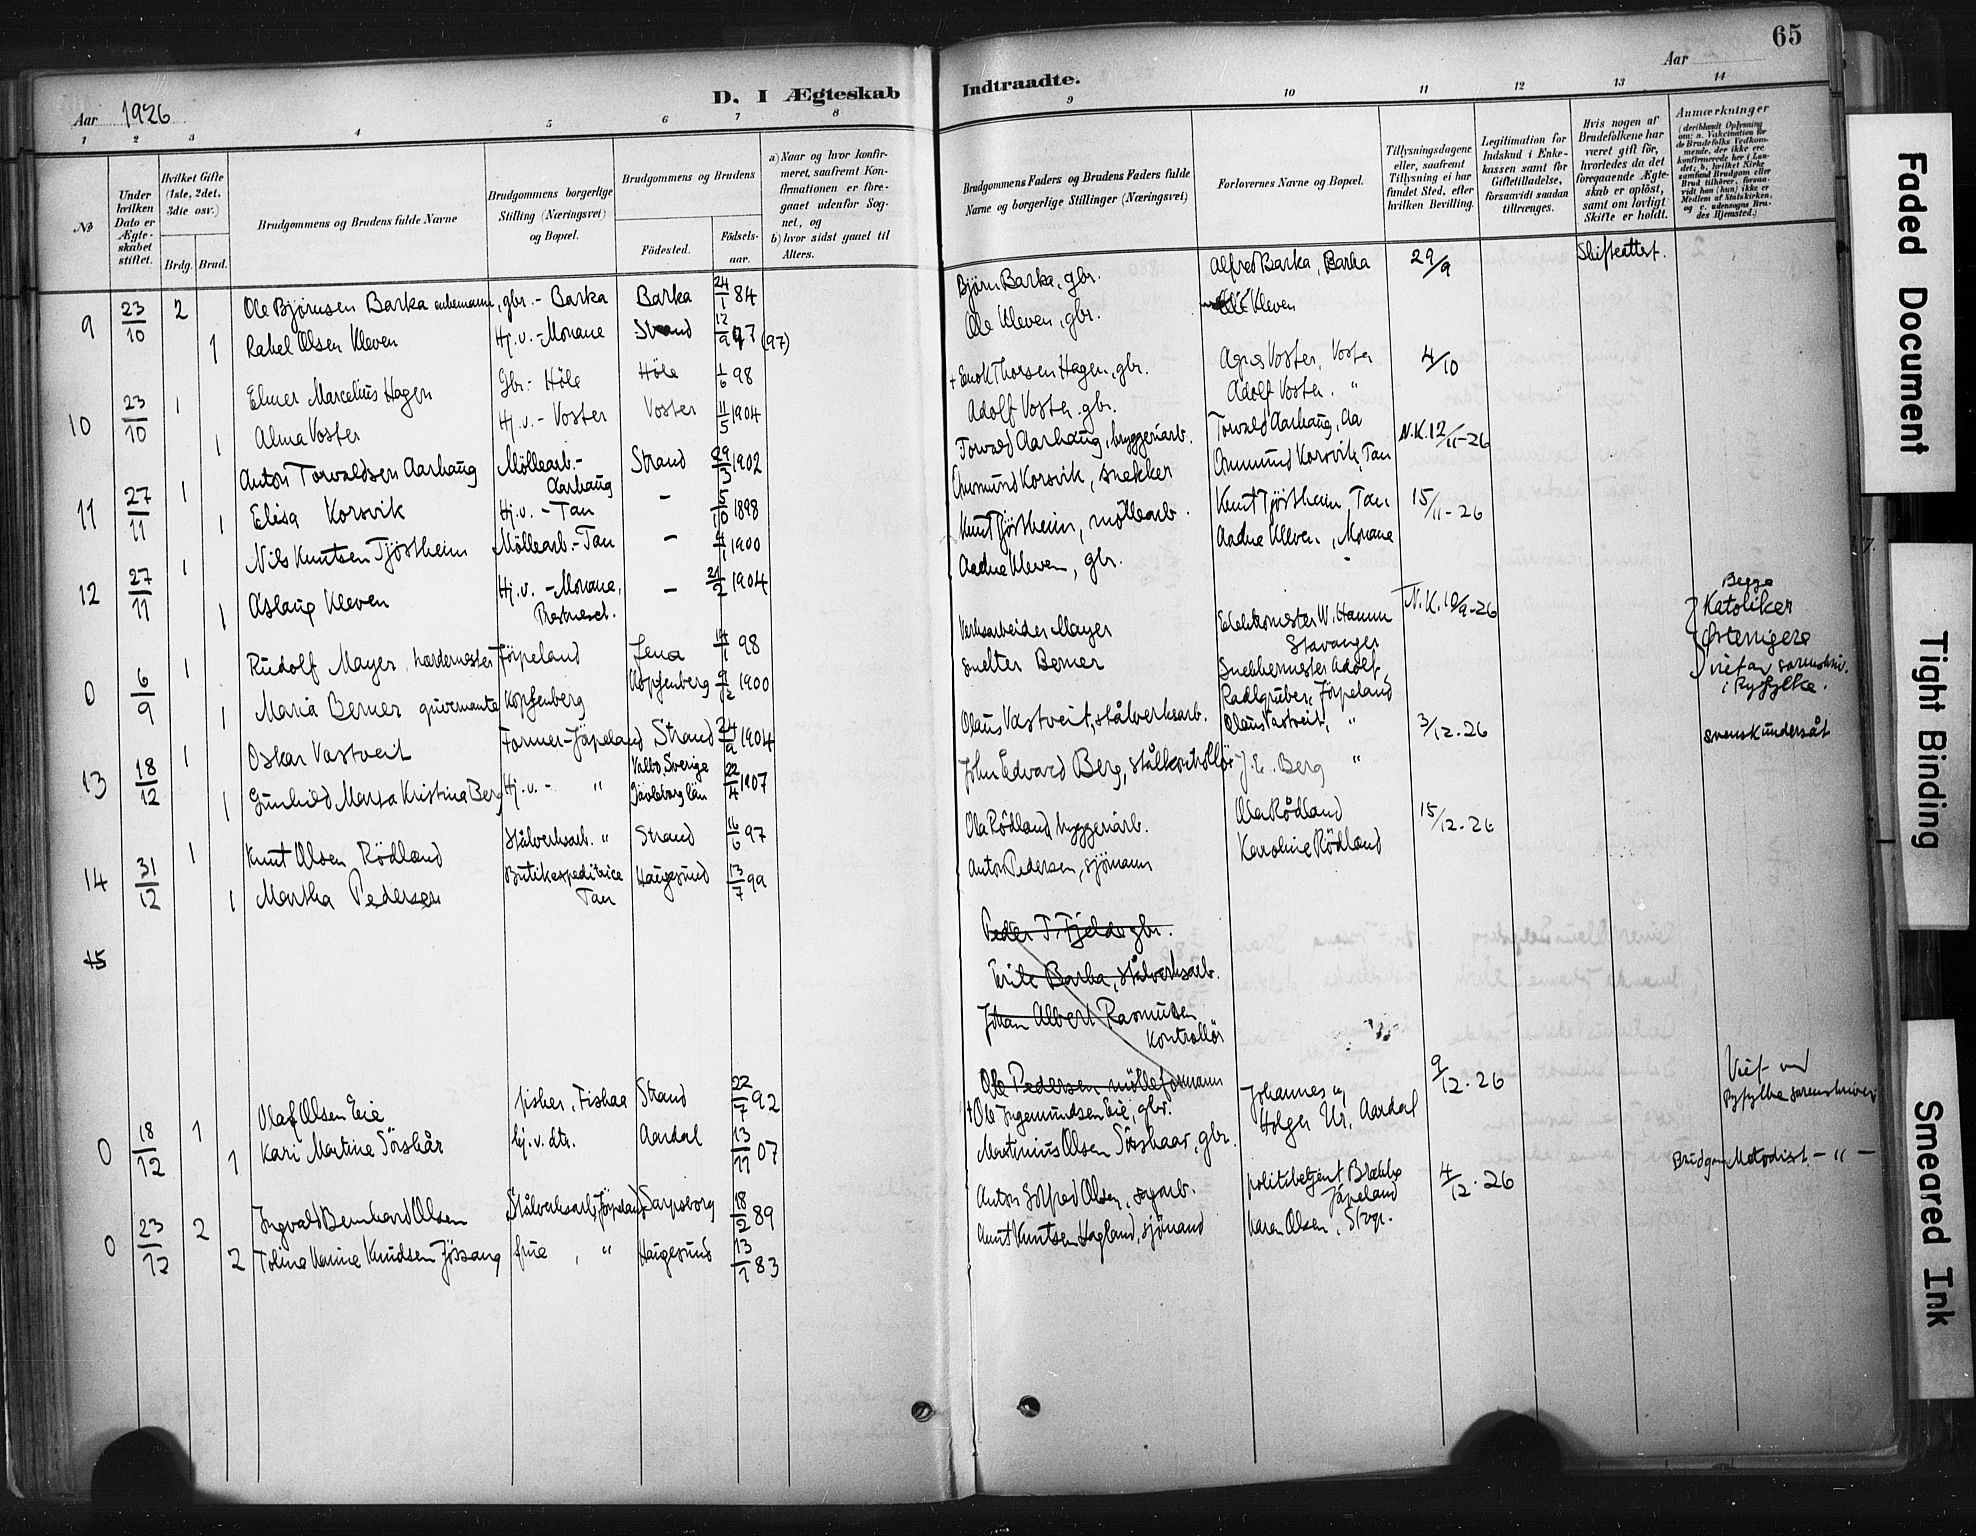 65
Aar 1926
D. I Ægteskab
Indtraadte.
Aar
1 2 3 4 5 6 7 8
9 10 11 12 13 14
№
Under hvilken Dato er Ægteskabet stiftet.
Hvilket Gifte (1ste, 2det, 3die osv.)
Brdg. Brud.
Brudgommens og Brudens fulde Navne
Brudgommens borgerlige Stilling (Næringsvei) og Bopæl.
Brudgommens og Brudens
Födested.
Födselsaar.
a) Naar og hvor konfirmeret, saafremt Konfirmationen er foregaaet udenfor Sognet, og
b) hvor sidst gaaet til Alters.
Brudgommens Faders og Brudens Faders fulde Navne og borgerlige Stillinger (Næringsvei)
Forlovernes Navne og Bopæl.
Tillysningsdagene eller, saafremt Tillysning ei har fundet Sted, efter hvilken Bevilling.
Legitimation for Indskud i Enkekassen samt for Giftetilladelse, forsaavidt saadan tiltrænges.
Hvis nogen af Brudefolkene har været gift för, hvorledes da det foregaaende Ægteskab er oplöst, samt om lovligt Skifte er holdt.
Anmærkninger
(deriblandt Oplysning om: a. Vakcination for de Brudefolks Vedkommende, der ikke ere konfirmerede her i Landet, b. hvilket Kirkesamfund Brudgom eller Brud tilhører, forsaavidt han (hun) ikke er Medlem af Statskirken, og c. udensogns Brudes Hjemsted.)
9 23/10 2 Ole Bjørnsen Barka enkemann, gbr. - Barka Barka 24/1 84 Bjørn Barka, gbr. Alfred Barka, Barka 29/9 Skifteattest.
1 Rakel Olsen Kleven Hj.v. - Morane Strand 12/9 97 (97) Ole Kleven, gbr. Ole Kleven
10 23/10 1 Elmer Marcelius Hagen Gbr. - Höle Höle 1/6 98 + Enok Thorsen Hagen, gbr. Voster 4/10
1 Alma Voster Hj.v. - Voster Voster 11/5 1904 Adolf Voster. gbr. Adolf Voster. "
11 27/11 1 Anton Torvaldsen Aarhaug Möllearb. - Aarhaug Strand 29/3 1902 Torvald Aarhaug, Torvald Aarhaug, Aa N.K. 12/11-26
1 Elisa Korsvik Hj.v. - Tau - 5/10 1898 Korsvik, snekker Korsvik, Tau
12 27/11 1 Nils Knutsen Tjöstheim Möllearb. - Tau - 4/1 1900 Knut Tjöstheim, möllearb. Knut Tjöstheim, Tau 15/11-26
1 Aslaug Kleven Hj.v. - Morane, - 21/2 1904 Aadne Kleven, gbr. Aadne Kleven, Morane
0 6/9 1 Rudolf Mayer, herdemester Jörpeland Jena 98 Verksarbeider Mayer W. Hamm Stavanger N.K. 10/9-26 Begge Katoliker
1 Maria Berner guvernante Kopfenberg Kopfenberg 1900 Smelter Berner Snekkermester Adolf Radlgruber, Jörpeland Østerrigere viet av sorenskriv. i Ryfylke.
13 18/12 1 Oskar Vastveit Former - Jöpeland Strand 24/9 1904 Olaus Vastveit, stålverksarb. Olaus Vastveit, " 3/12.26
1 Gunhild Marta Kristina Berg Hj.v. - " Valbo Sverige Gävleborg län 22/4 1907 John Edvard Berg, stålkontrollör J. E. Berg " svensk undersåt
14 31/12 1 Knut Olsen Rödland Stålverksarb. " Strand 16/6 97 Ola Rödland Ola Rödland 15/12.26
1 Martha Pedersen Butikexpeditrice Tau Haugesund 13/7 99 Anton Pedersen, sjömann Karoline Rödland
15 Peder T. Fjelde gbr.
Barka, stålverksarb.
Johan Albert Rasmussen kontrollör
Ole Pedersen mölleformann
0 18/12 1 Olaf Olsen Eie fisker, Fiskaa Strand 22/7 92 + Ole Ingemundsen Eie, gbr. Johannes og 9/12.26 Viet ved Ryfylke sorenskriver
1 Kari Martine Sörskår hj.v. dtr. Aardal 13/11 07 Martinius Olsen Sörskaar, gbr. Holger Aardal
0 23/12 2 Ingvald Bernhard Olsen Stålverksarb, Jörpeland Sarpsborg 18/2 89 Anton Olsen, sagarb. politibetjent Brække Jöpeland 4/12.26 Brudgom Metodist. - " -
2 Toline Karine Knudsen Jössang frue, " Haugesund 13/1 83 Knut Knutsen Hagland, sjömand Karen Olsen, Stvgr.
Faded Document
Tight Binding
Smeared Ink